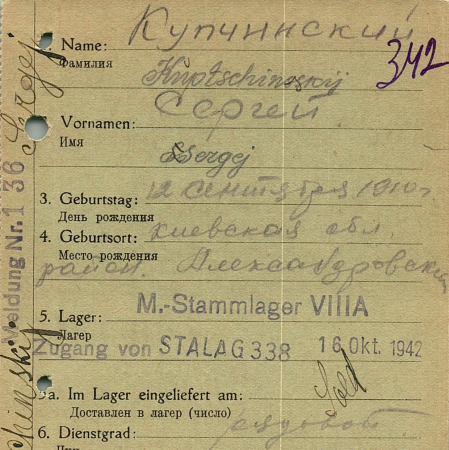 Купчинский
Name:
Фамилия
Kuptschinoskij
342
Сергей
Vornamen:
Имя
Ssergej
3. Geburtstag: 12 сентября 1910г
День рождения
Киевская обл.
4. Geburtsort:
Место рождения
район. Александровский
5. Lager: M.-Stammlager VIIIA
Лагер
Zugang von STALAG 338 16. Okt. 1942
5a. Im Lager eingeliefert am:
Доставлен в лагер (число)
Sold
6. Dienstgrad: рядовой
Чин
Meldung Nr. 136
Sergej